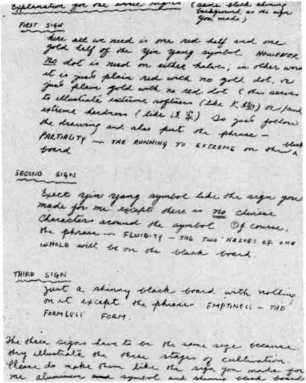 Explanation for the other signs (same black shining
background as the sign
you made)
FIRST SIGN
here all we need is one red half and one
gold half of the yin yang symbol. HOWEVER
NO dot is need on either halve; in other words
it is just plain red with no gold dot, or
just plain gold with no red dot (this serves
to illustrate extreme softness (like or/and
extreme hardness (like So just follow
the drawing and also put the phrase -
PARTIALITY - THE RUNNING TO EXTREME on the black
board
SECOND SIGN
Exact yin yang symbol like the sign you
made for me except there is no chinese
characters around the symbol Of course,
the phrase - FLUIDITY - THE TWO HALVES OF ONE
WHOLE will be on the black board
THIRD SIGN
Just a shinny black board with nothing
on it except the phrase EMPTINESS - THE
FORMLESS FORM.
The three signs have to be the same size because
they illustrate the three stages of cultivation.
Please do make them like the sign you made for
me aluminum symbol and shinny black board